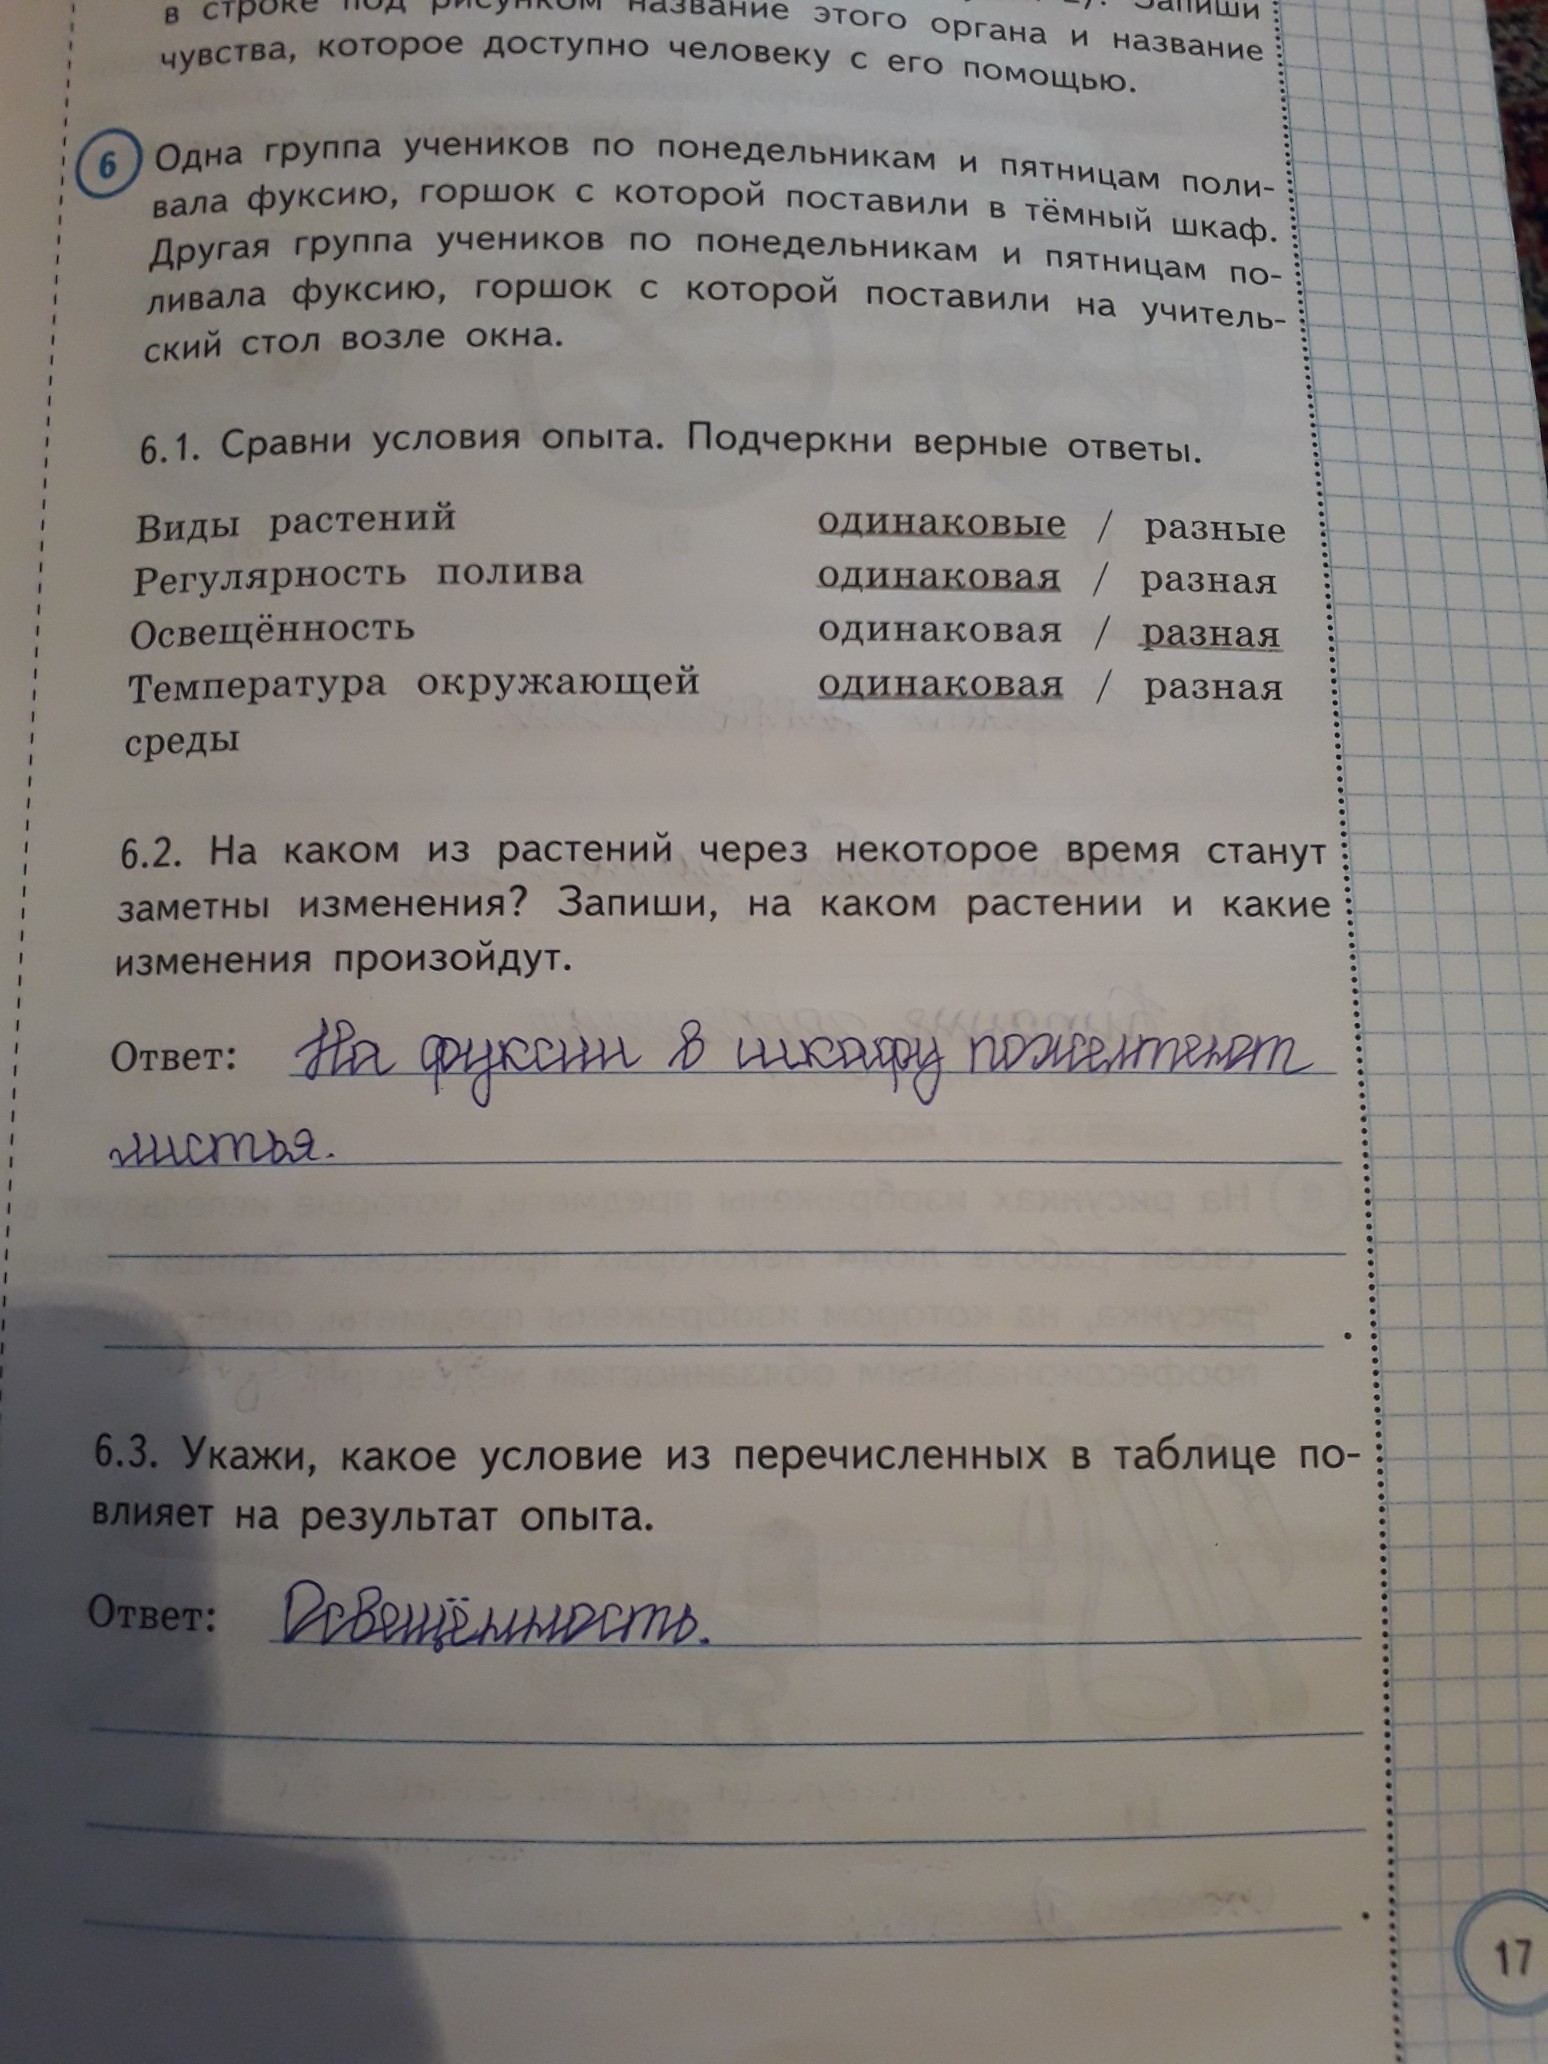 в строке под рисунком название этого органа и название
чувства, которое доступно человеку с его помощью.
6 Одна группа учеников по понедельникам и пятницам поли-
вала фуксию, горшок с которой поставили в тёмный шкаф.
Другая группа учеников по понедельникам и пятницам по-
ливала фуксию, горшок с которой поставили на учитель-
ский стол возле окна.
6.1. Сравни условия опыта. Подчеркни верные ответы.
Виды растений одинаковые / разные
Регулярность полива одинаковая / разная
Освещённость одинаковая / разная
Температура окружающей одинаковая / разная
среды
6.2. На каком из растений через некоторое время станут
заметны изменения? Запиши, на каком растении и какие
изменения произойдут.
Ответ: На фуксии в шкафу пожелтеют
листья.
6.3. Укажи, какое условие из перечисленных в таблице по-
влияет на результат опыта.
Ответ: Освещённость.
17